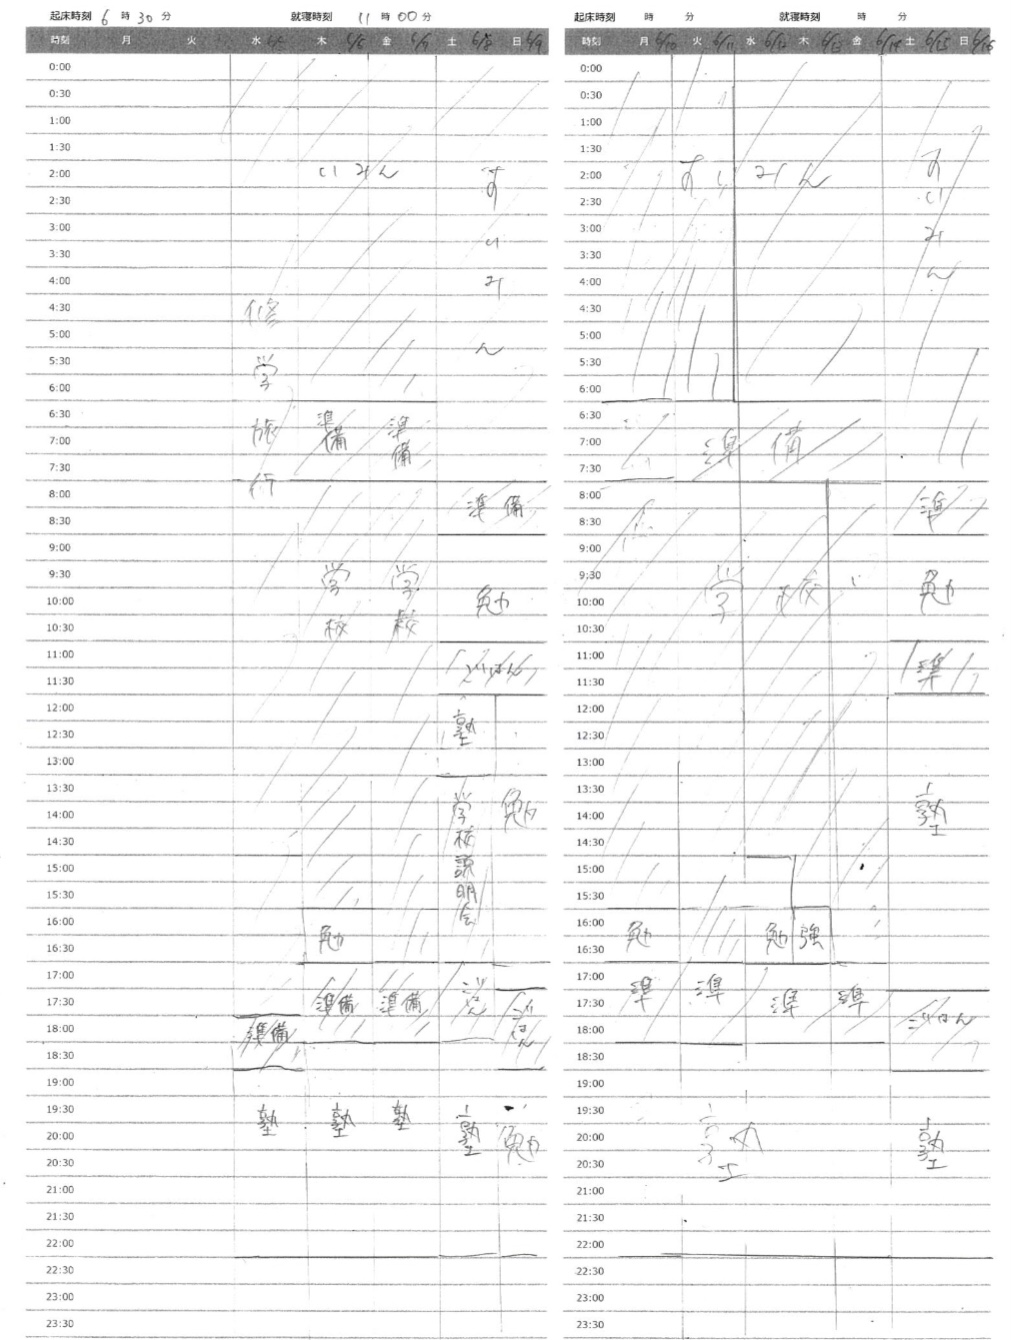 起床時刻 6 時 30 分 就寝時刻 11 時 00 分
時刻 月 火 水 木 6/6 金 6/7 土 6/8 日 6/9
0:00
0:30
1:00
1:30
2:00 いみん す
2:30
3:00 い
3:30
4:00 み
4:30 修
5:00 ん
5:30 学
6:00
6:30 準 準
7:00 旅 備 備
7:30
8:00 行 準備
8:30
9:00
9:30 学 学
10:00 勉
10:30 校 校
11:00 ごはん
11:30
12:00 塾
12:30
13:00
13:30 学 勉
14:00 校
14:30
15:00 説
15:30 明
16:00 勉 会
16:30
17:00
17:30 準備 準備 ごはん ごはん
18:00 準備
18:30
19:00
19:30 塾 塾 塾
20:00 塾 勉
20:30
21:00
21:30
22:00
22:30
23:00
23:30
起床時刻 時 分 就寝時刻 時 分
時刻 月 6/10 火 6/11 水 6/12 木 6/13 金 6/14 土 6/15 日 6/16
0:00
0:30
1:00
1:30
2:00 すいみん す
2:30 い
3:00 み
3:30
4:00 ん
4:30
5:00
5:30
6:00
6:30
7:00 準備
7:30
8:00 準
8:30
9:00
9:30 学校 勉
10:00
10:30
11:00 準
11:30
12:00
12:30
13:00
13:30
14:00 塾
14:30
15:00
15:30
16:00 勉 勉強
16:30
17:00
17:30 準 準 準 準 ごはん
18:00
18:30
19:00
19:30
20:00 塾 塾
20:30
21:00
21:30
22:00
22:30
23:00
23:30